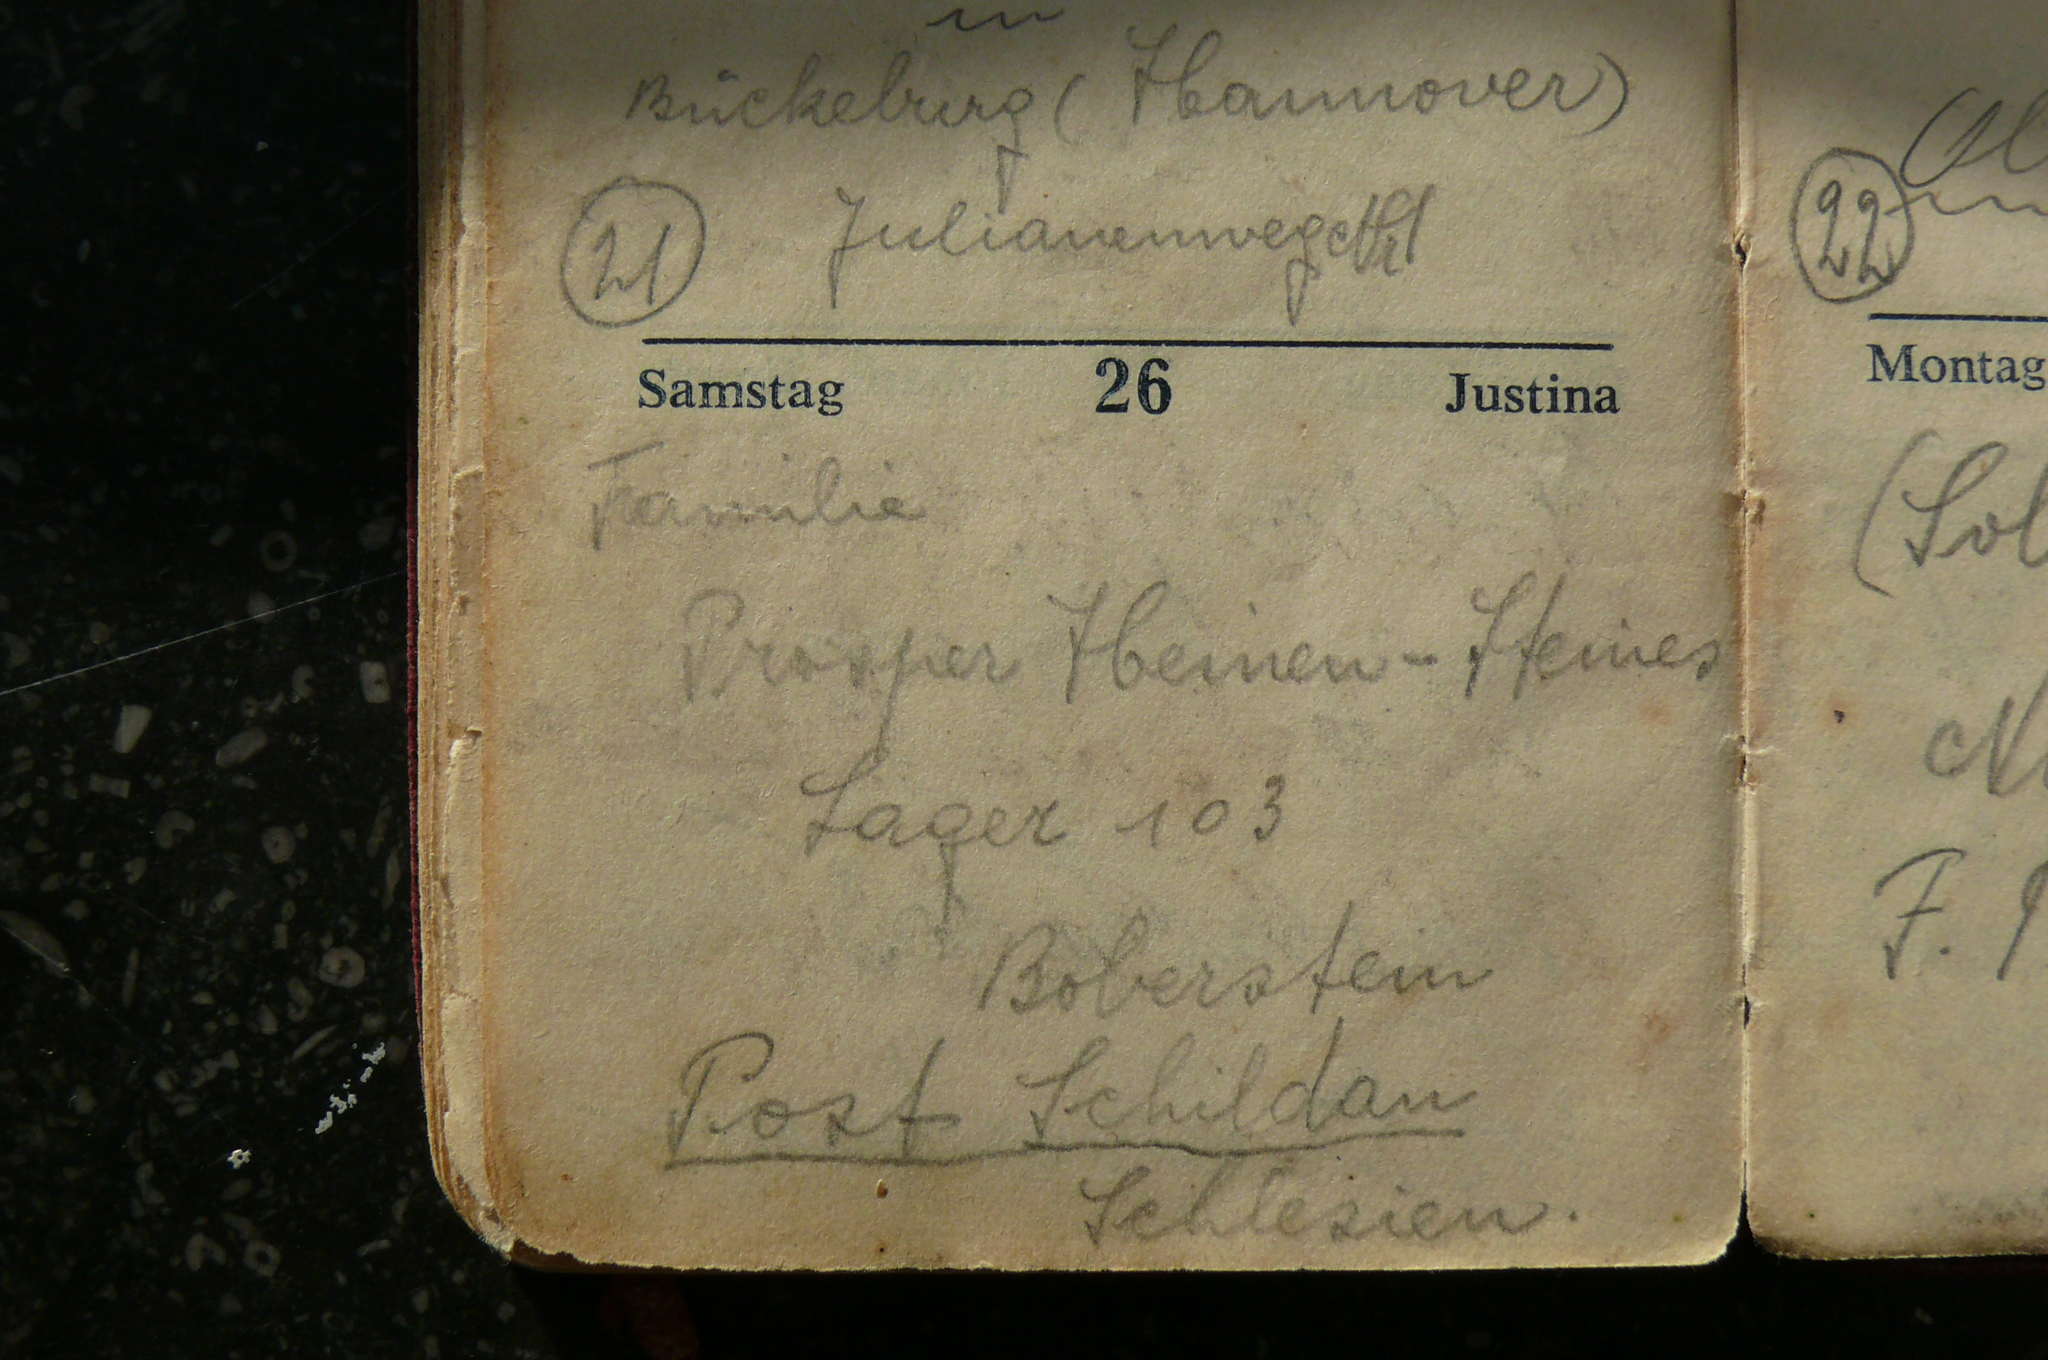 in
Bückeburg (Hannover)
21 Julianenweg
Samstag 26 Justina
Familie
Prosper Heinen-Steines
Lager 103
Boberstein
Post Schildau
Schlesien.
22
Montag
(Sol
F.